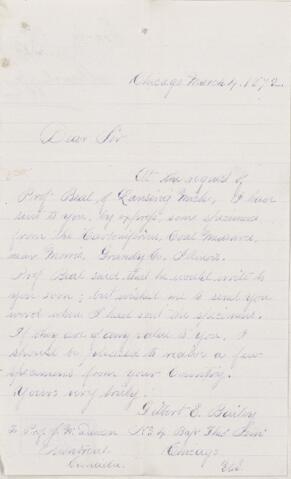 Chicago March 4. 1872
Dear Sir
At the request of
Prof. Beal of Lansing Mich, I have
sent to you, by express some specimens
from the Carboniferous, Coal Measures,
near Morris, Grundy Co. Illinois.
Prof Beal said that he would write to
you soon; but wished me to send you
word when I had sent the specimens.
If they are of any value to you, I
should be pleased to receive a few
specimens from your Country.
Yours very truly.
Gilbert E. Bailey
To Prof J. W. Dawson No 4 Bapt. Theo. Sem
Montreal Chicago
Canada. Ill.